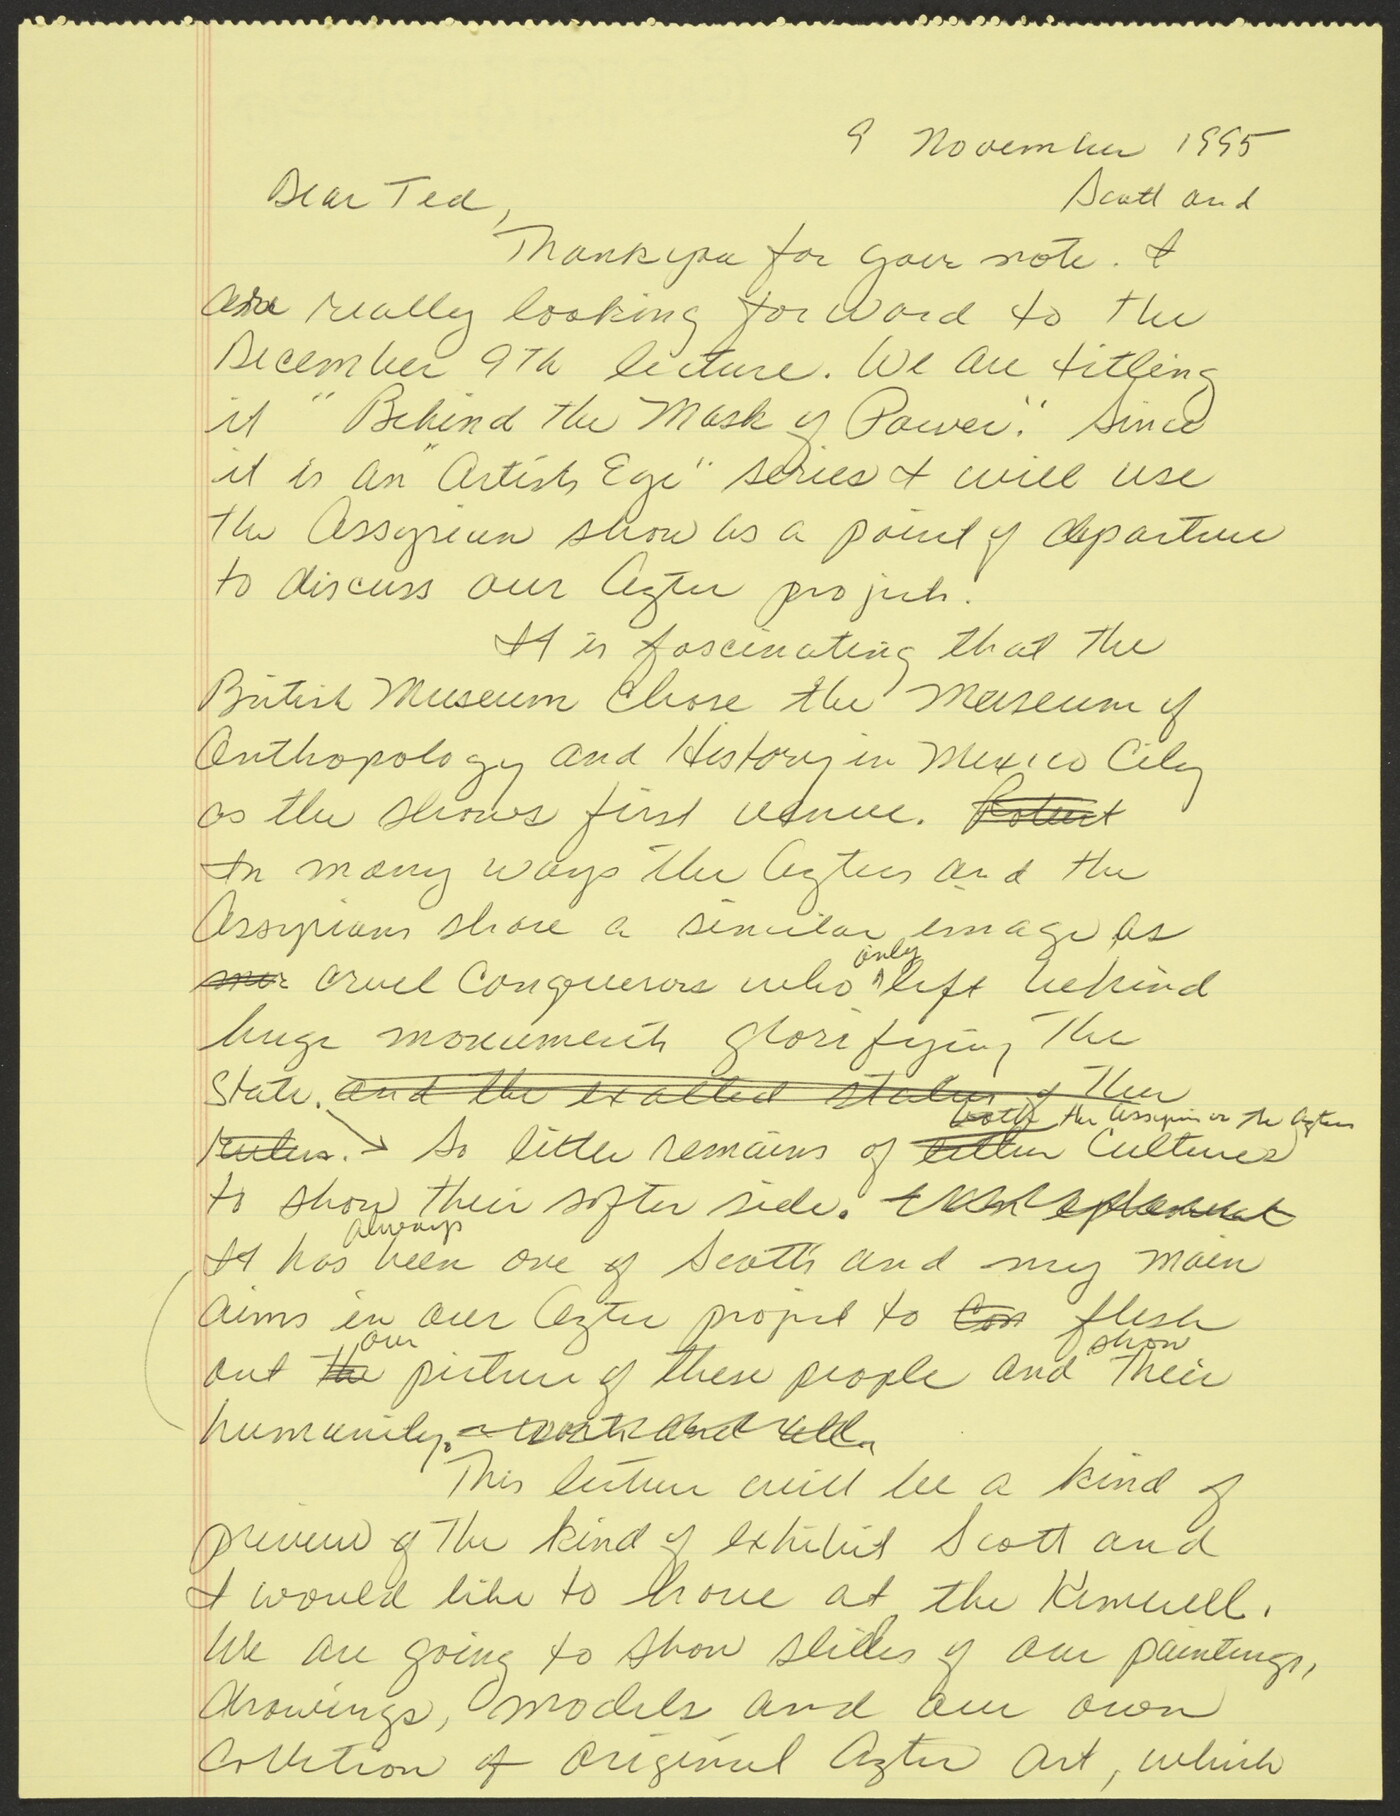 9 November 1995
Dear Ted,
Scott and
Thank you for your note. I
are really looking forward to the
December 9th lecture. We are titling
it "Behind the Mask of Power." Since
it is an "Artists Eye" series I will use
the Assyrian show as a point of departure
to discuss our Aztec projects.
It is fascinating that the
British Museum chose the Museum of
Anthopology and History in Mexico City
as the shows first venue.
In many ways the Aztecs and the
Assyrians share a similar image as
only
cruel conquerors who left behind
huge monuments glorifying the
State. and the exalted status of their
both the Assyrian or the Aztec
rulers. → So little remains of either Cultures
to show their softer side.
always
It has been one of Scott's and my main
aims in our Aztec project to flesh
our show
out the picture of these people and their
humanity. - warts and all.
This lecture will be a kind of
preview of the kind of exhibit Scott and
I would like to have at the Kimbell.
We are going to show slides of our paintings,
drawings, models and our own
collection of original Aztec art, which